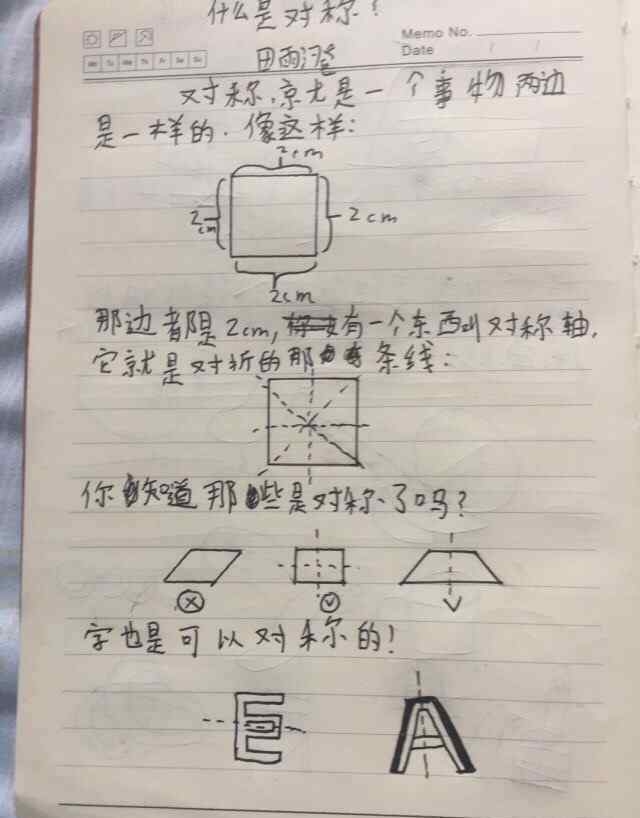 什么是对称?
Memo No.
Mo Tu We Th Fr Sa Su
Date / /
田雨
对称,就是一个事物两边
是一样的.像这样:
2cm
2cm
2cm
2cm
那边都是2cm,有一个东西叫对称轴,
它就是对折的那条线:
你知道那些是对称了吗?
字也是可以对称的!
E A